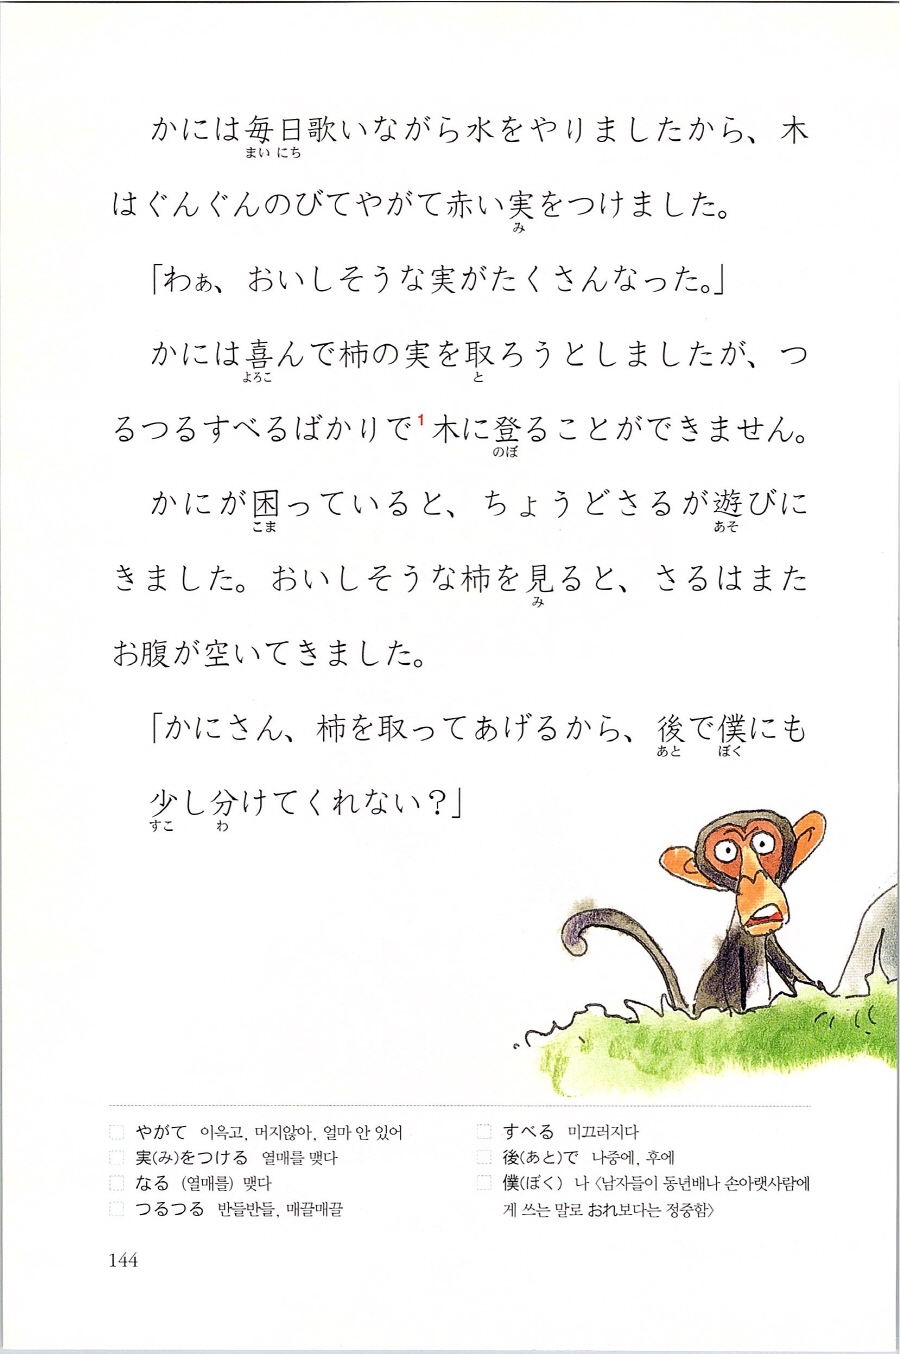 かには毎日歌いながら水をやりましたから、木
まい にち
はぐんぐんのびてやがて赤い実をつけました。
み
「わぁ、おいしそうな実がたくさんなった。」
かには喜んで柿の実を取ろうとしましたが、つ
よろこ と
るつるすべるばかりで1木に登ることができません。
のぼ
かにが困っていると、ちょうどさるが遊びに
こま あそ
きました。おいしそうな柿を見ると、さるはまた
み
お腹が空いてきました。
「かにさん、柿を取ってあげるから、後で僕にも
あと ぼく
少し分けてくれない？」
すこ わ
やがて 이윽고, 머지않아, 얼마 안 있어
実(み)をつける 열매를 맺다
なる (열매를) 맺다
つるつる 반들반들, 매끌매끌
すべる 미끄러지다
後(あと)で 나중에, 후에
僕(ぼく) 나 〈남자들이 동년배나 손아랫사람에
게 쓰는 말로 おれ보다는 정중함〉
144